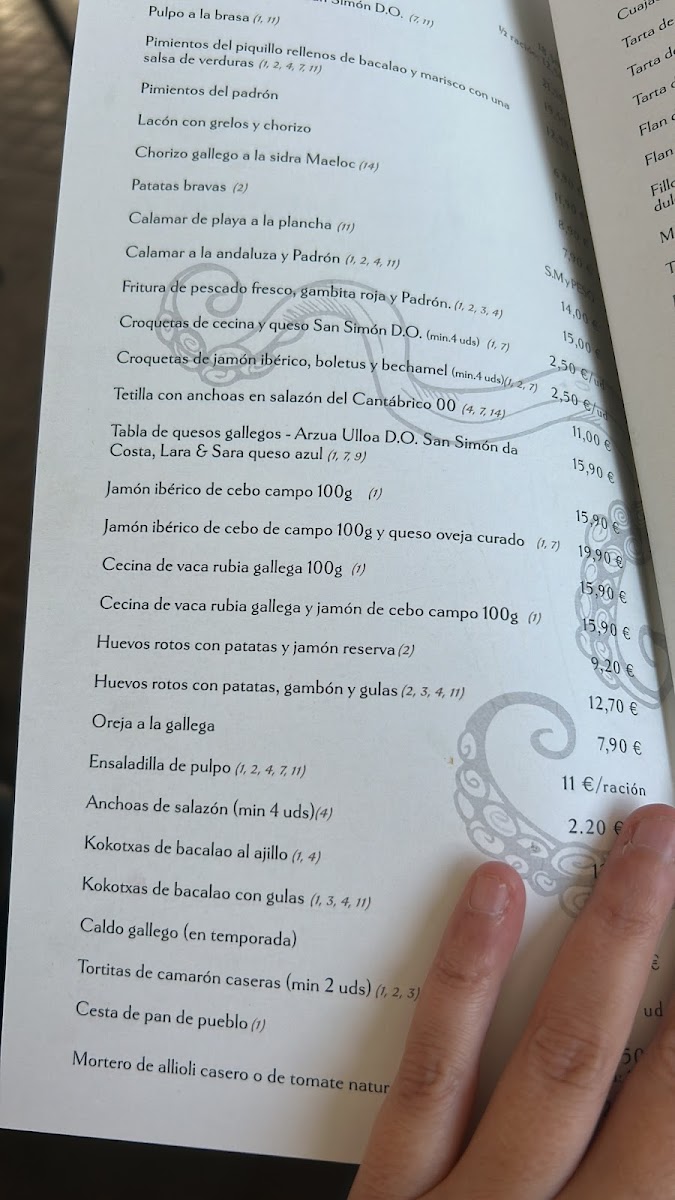 Simón D.O. (7, 11)
Pulpo a la brasa (1, 11)
½ ración
Pimientos del piquillo rellenos de bacalao y marisco con una
salsa de verduras (1, 2, 4, 7, 11)
Pimientos del padrón
Lacón con grelos y chorizo
Chorizo gallego a la sidra Maeloc (14)
Patatas bravas (2)
Calamar de playa a la plancha (11)
Calamar a la andaluza y Padrón (1, 2, 4, 11)
S.M y PESO
Fritura de pescado fresco, gambita roja y Padrón. (1, 2, 3, 4)
14,00 €
Croquetas de cecina y queso San Simón D.O. (min.4 uds) (1, 7)
15,00 €
Croquetas de jamón ibérico, boletus y bechamel (min.4 uds)(1, 2, 7)
2,50 €/ud
Tetilla con anchoas en salazón del Cantábrico 00 (4, 7, 14)
2,50 €/ud
Tabla de quesos gallegos - Arzua Ulloa D.O. San Simón da
11,00 €
Costa, Lara & Sara queso azul (1, 7, 9)
15,90 €
Jamón ibérico de cebo campo 100g (1)
15,90 €
Jamón ibérico de cebo de campo 100g y queso oveja curado (1, 7)
19,90 €
Cecina de vaca rubia gallega 100g (1)
15,90 €
Cecina de vaca rubia gallega y jamón de cebo campo 100g (1)
15,90 €
Huevos rotos con patatas y jamón reserva (2)
9,20 €
Huevos rotos con patatas, gambón y gulas (2, 3, 4, 11)
12,70 €
Oreja a la gallega
7,90 €
Ensaladilla de pulpo (1, 2, 4, 7, 11)
11 €/ración
Anchoas de salazón (min 4 uds)(4)
2.20 €
Kokotxas de bacalao al ajillo (1, 4)
Kokotxas de bacalao con gulas (1, 3, 4, 11)
Caldo gallego (en temporada)
Tortitas de camarón caseras (min 2 uds) (1, 2, 3)
ud
Cesta de pan de pueblo (1)
Mortero de allioli casero o de tomate natur
Tarta de
Tarta de
Tarta
Flan
Flan